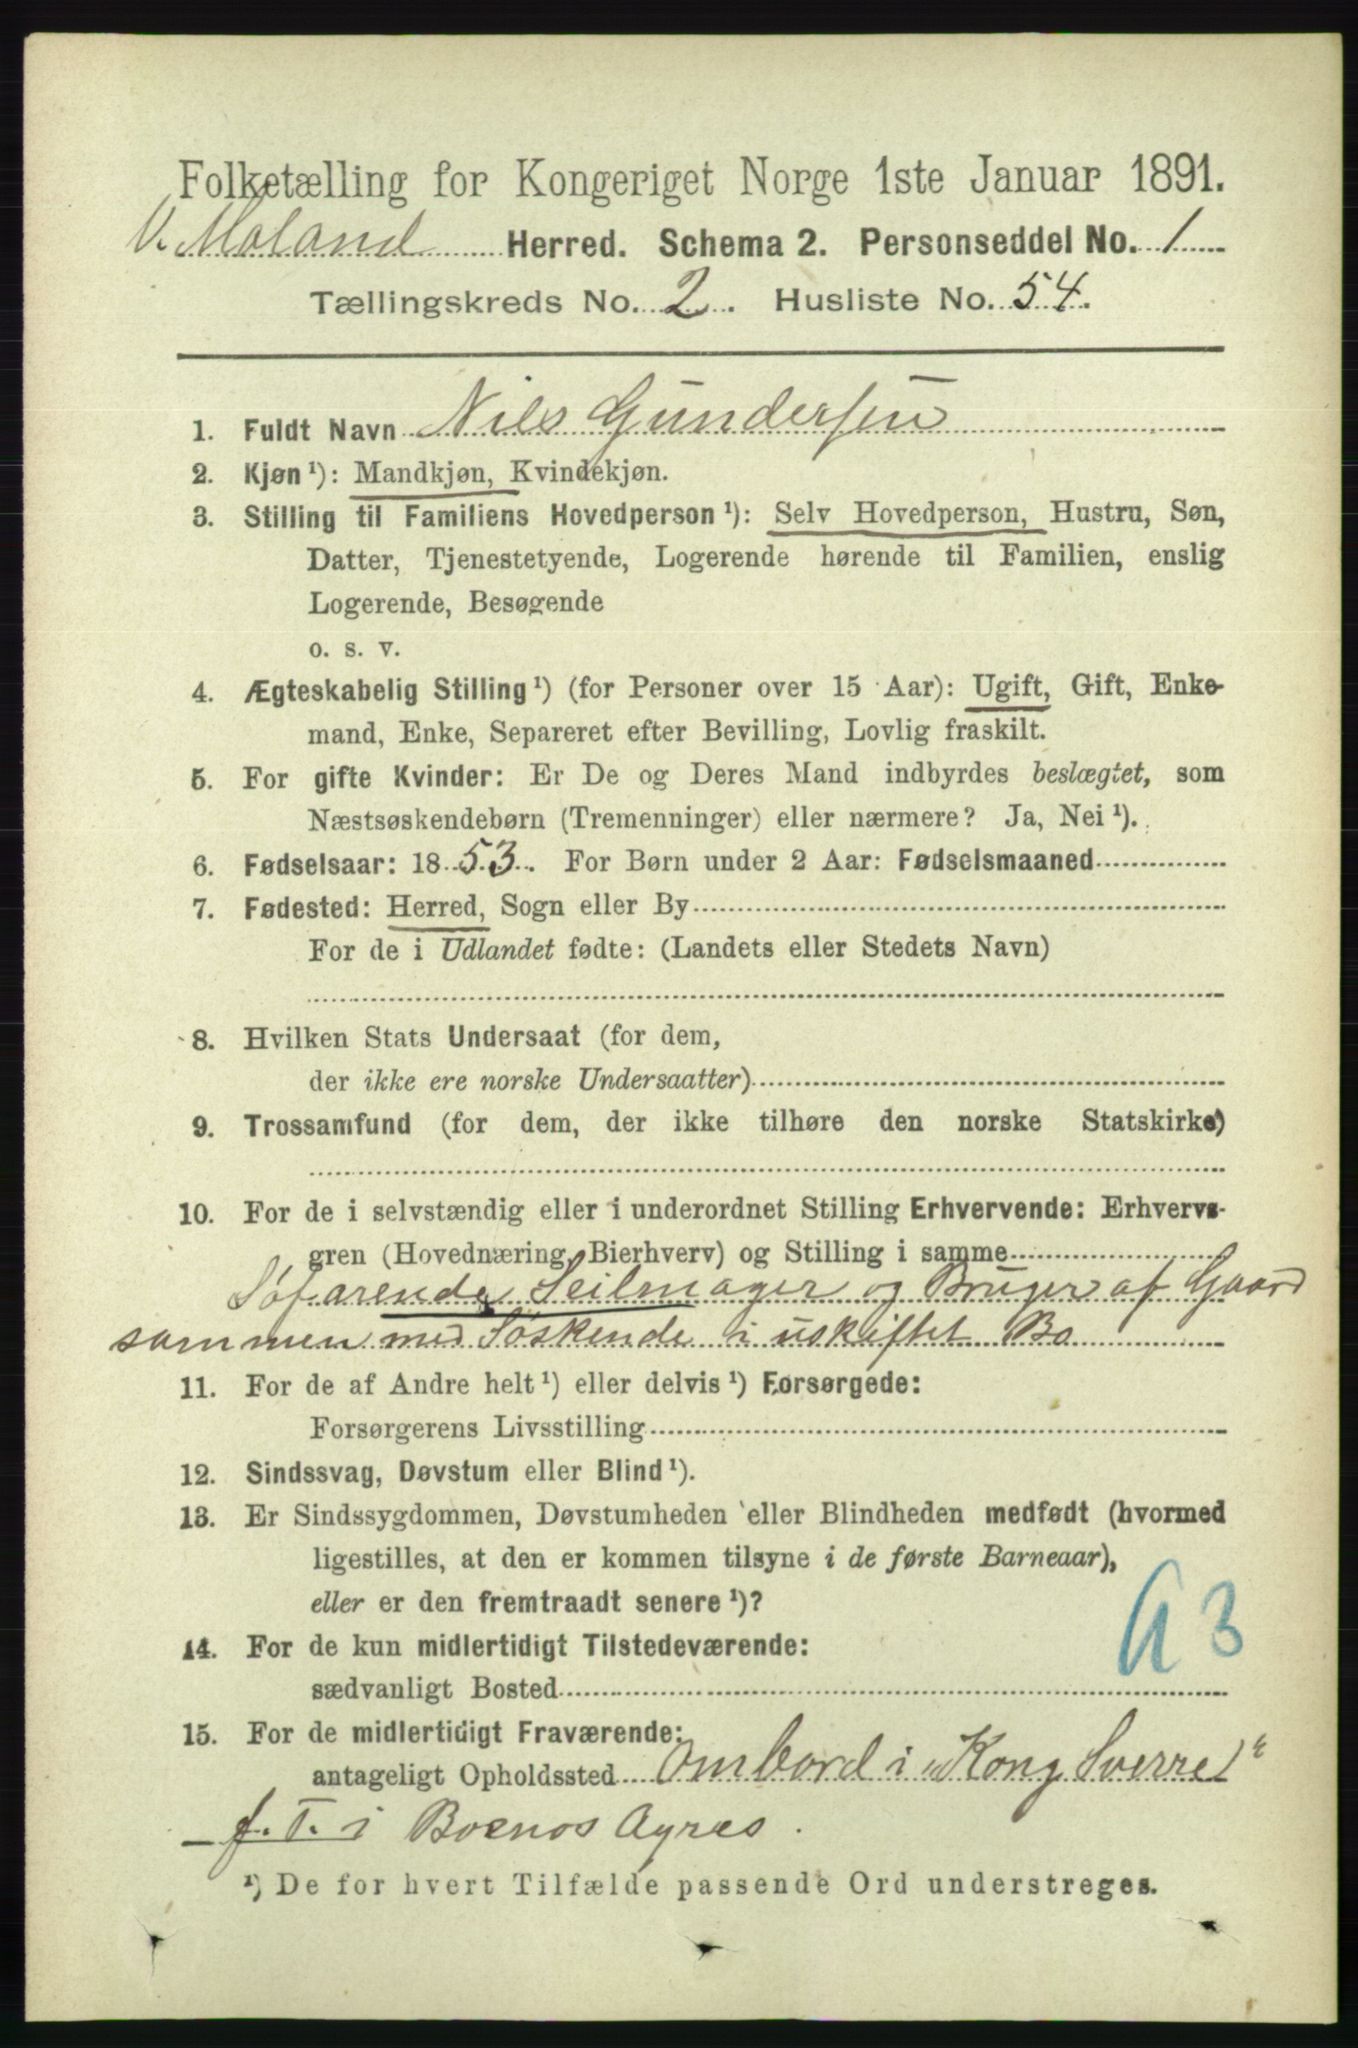 Folketælling for Kongeriget Norge 1ste Januar 1891.
V. Moland Herred. Schema 2. Personseddel No. 1
Tællingskreds No. 2. Husliste No. 54.
1. Fuldt Navn Nils Gundersen
2. Kjøn ¹): Mandkjøn, Kvindekjøn.
3. Stilling til Familiens Hovedperson ¹): Selv Hovedperson, Hustru, Søn,
Datter, Tjenestetyende, Logerende hørende til Familien, enslig
Logerende, Besøgende
o. s. v.
4. Ægteskabelig Stilling ¹) (for Personer over 15 Aar): Ugift, Gift, Enke-
mand, Enke, Separeret efter Bevilling, Lovlig fraskilt.
5. For gifte Kvinder: Er De og Deres Mand indbyrdes beslægtet, som
Næstsøskendebørn (Tremenninger) eller nærmere? Ja, Nei ¹).
6. Fødselsaar: 1853. For Børn under 2 Aar: Fødselsmaaned
7. Fødested: Herred, Sogn eller By
For de i Udlandet fødte: (Landets eller Stedets Navn)
8. Hvilken Stats Undersaat (for dem,
der ikke ere norske Undersaatter)
9. Trossamfund (for dem, der ikke tilhøre den norske Statskirke)
10. For de i selvstændig eller i underordnet Stilling Erhvervende: Erhvervs-
gren (Hovednæring, Bierhverv) og Stilling i samme
Søfarende Seilmager og Bruger af Gaard
sammen med Søskende i uskiftet Bo
11. For de af Andre helt ¹) eller delvis ¹) Forsørgede:
Forsørgerens Livsstilling
12. Sindssvag, Døvstum eller Blind ¹).
13. Er Sindssygdommen, Døvstumheden eller Blindheden medfødt (hvormed
ligestilles, at den er kommen tilsyne i de første Barneaar),
eller er den fremtraadt senere ¹)?
G 3
14. For de kun midlertidigt Tilstedeværende:
sædvanligt Bosted
15. For de midlertidigt Fraværende:
antageligt Opholdssted ombord i „Kong Sverre“
f. T. i Boenos Ayres.
¹) De for hvert Tilfælde passende Ord understreges.